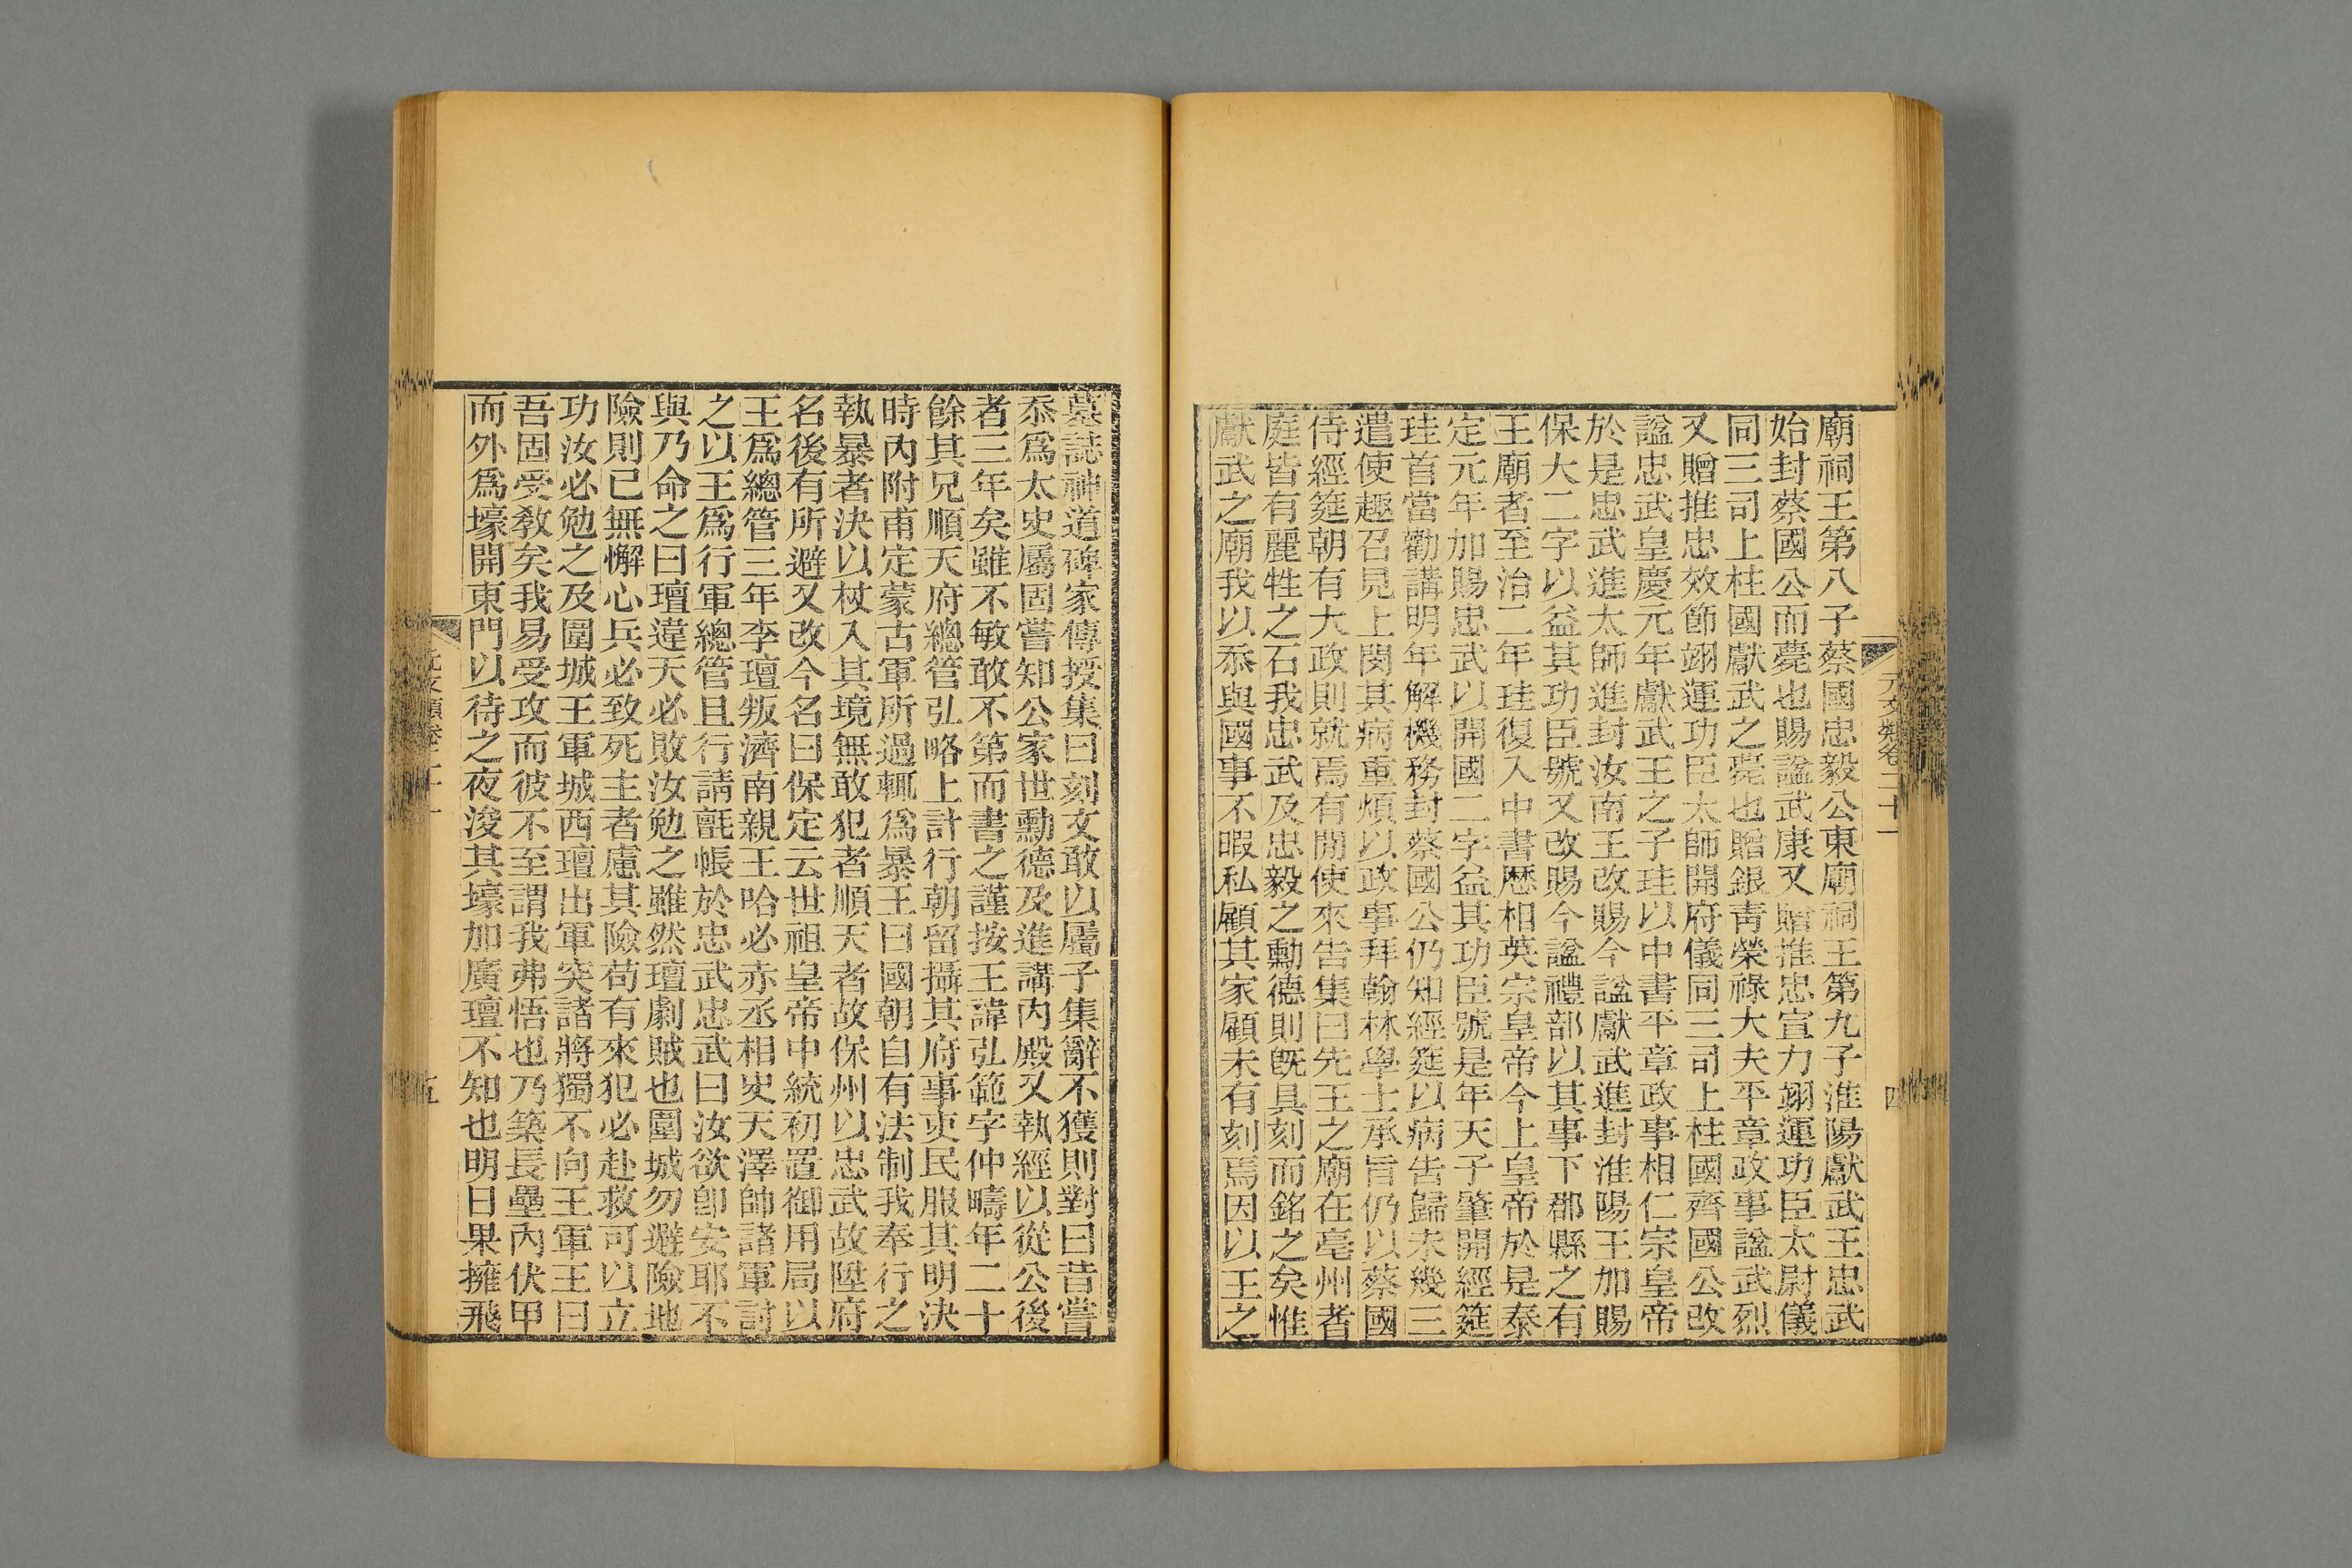 元文類卷二十一
四
廟祠王第八子蔡國忠毅公東廟祠王第九子淮陽獻武王忠武
始封蔡國公而薨也賜諡武康又贈推忠宣力翊運功臣太尉儀
同三司上柱國獻武之薨也贈銀靑榮祿大夫平章政事諡武烈
又贈推忠效節翊運功臣太師開府儀同三司上柱國齊國公改
諡忠武皇慶元年獻武王之子珪以中書平章政事相仁宗皇帝
於是忠武進太師進封汝南王改賜今諡獻武進封淮陽王加賜
保大二字以益其功臣號又改賜今諡禮部以其事下郡縣之有
王廟者至治二年珪復入中書歷相英宗皇帝今上皇帝於是泰
定元年加賜忠武以開國二字益其功臣號是年天子肇開經筵
珪首當勸講明年解機務封蔡國公仍知經筵以病告歸未幾三
遣使趣召見上閔其病重煩以政事拜翰林學士承旨仍以蔡國
侍經筵朝有大政則就焉有閒使來告集曰先王之廟在亳州者
庭皆有麗牲之石我忠武及忠毅之勳德則旣具刻而銘之矣惟
獻武之廟我以忝與國事不暇私顧其家顧未有刻焉因以王之
墓誌神道碑家傳授集曰刻文敢以屬子集辭不獲則對曰昔嘗
忝爲太史屬固嘗知公家世勳德及進講內殿又執經以從公後
者三年矣雖不敏敢不第而書之謹按王諱弘範字仲疇年二十
餘其兄順天府總管弘略上計行朝留攝其府事吏民服其明決
時內附甫定蒙古軍所過輒爲暴王曰國朝自有法制我奉行之
執暴者決以杖入其境無敢犯者順天者故保州以忠武故陞府
名後有所避又改今名曰保定云世祖皇帝中統初置御用局以
王爲總管三年李璮叛濟南親王哈必赤丞相史天澤帥諸軍討
之以王爲行軍總管且行請氈帳於忠武忠武曰汝欲卽安耶不
與乃命之曰璮違天必敗汝勉之雖然璮劇賊也圍城勿避險地
險則已無懈心兵必致死主者慮其險苟有來犯必赴救可以立
功汝必勉之及圍城王軍城西璮出軍突諸將獨不向王軍王曰
吾固受敎矣我易受攻而彼不至謂我弗悟也乃築長壘內伏甲
而外爲壕開東門以待之夜浚其壕加廣璮不知也明日果擁飛
元文類卷二十一
五